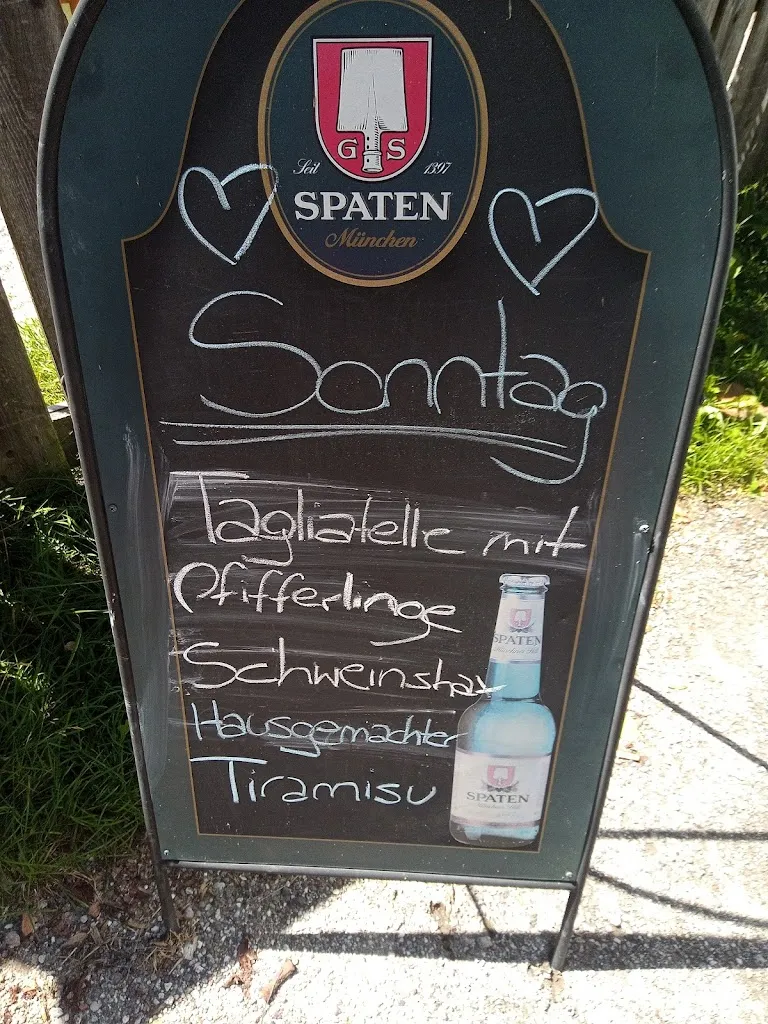 G S
Seit 1397
SPATEN
München
Sonntag
Tagliatelle mit
Pfifferlinge
Schweinshax
Hausgemachter
Tiramisu
SPATEN
SPATEN